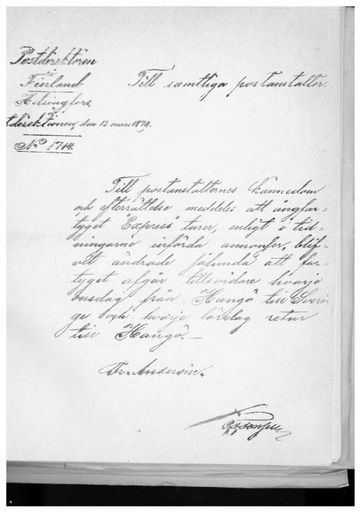 Postdirektören
i
Finland
Helsingfors,
tdirektionen, den 13 mars 1879.
No 1714.
Till samtliga postanstalter.
Till postanstalternes kännedom
och efterrättelse meddelas att ångfar-
tyget "Express" turer, enligt i tid-
ningarne införda annonser, blif-
vit ändrade sålunda att far-
tyget afgår tillsvidare hvarje
onsdag från Hangö till Sveri-
ge och hvarje lördag retur
till Hangö.—
Fr. Andersin.